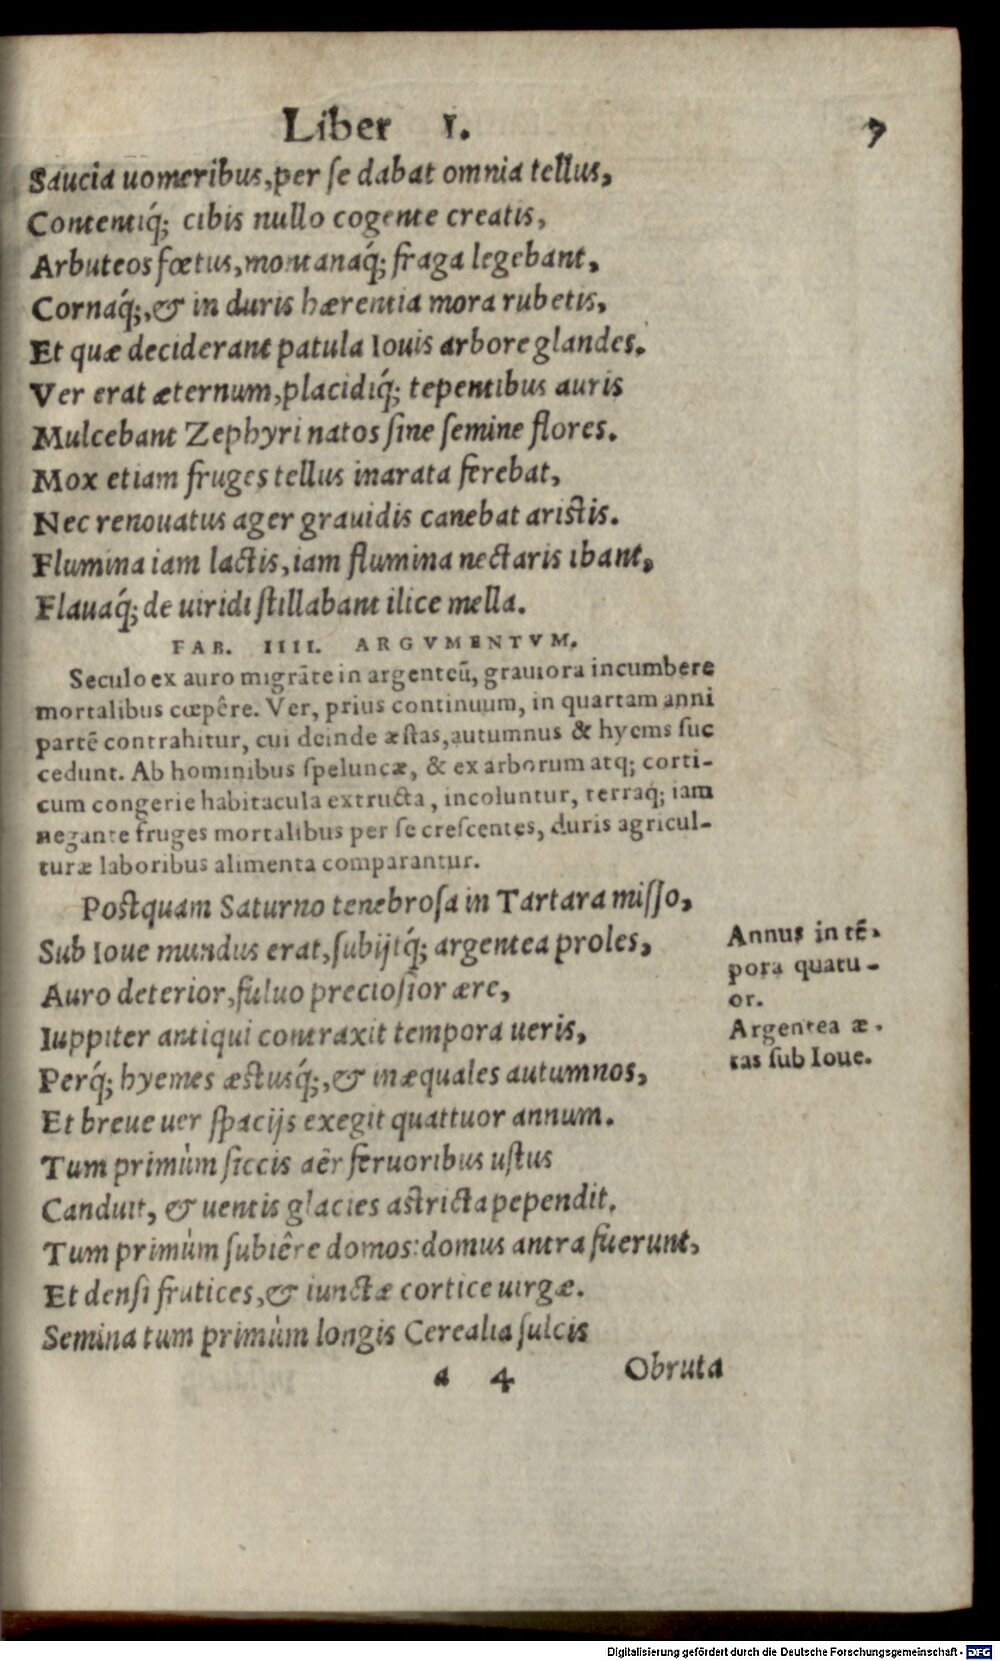 Liber I. 7
Saucia uomeribus, per se dabat omnia tellus,
Contentiq́; cibis nullo cogente creatis,
Arbuteos fœtus, montanaq́; fraga legebant,
Cornaq́;, & in duris hærentia mora rubetis,
Et quæ deciderant patula Iouis arbore glandes.
Ver erat æternum, placidiq́; tepentibus auris
Mulcebant Zephyri natos sine semine flores.
Mox etiam fruges tellus inarata ferebat,
Nec renouatus ager grauidis canebat aristis.
Flumina iam lactis, iam flumina nectaris ibant,
Flauaq́; de uiridi stillabant ilice mella.
FAB. IIII. ARGVMENTVM.
Seculo ex auro migrāte in argenteū, grauiora incumbere
mortalibus cœpêre. Ver, prius continuum, in quartam anni
partē contrahitur, cui deinde æstas, autumnus & hyems suc
cedunt. Ab hominibus speluncæ, & ex arborum atq; corti-
cum congerie habitacula extructa, incoluntur, terraq́; iam
negante fruges mortalibus per se crescentes, duris agricul-
turæ laboribus alimenta comparantur.
Postquam Saturno tenebrosa in Tartara misso,
Sub Ioue mundus erat, subijtq́; argentea proles,
Auro deterior, fuluo preciosior ære,
Iuppiter antiqui contraxit tempora ueris,
Perq́; hyemes æstusq́;, & inæquales autumnos,
Et breue uer spacijs exegit quattuor annum.
Tum primùm siccis aêr feruoribus ustus
Canduit, & uentis glacies astricta pependit.
Tum primùm subiêre domos: domus antra fuerunt,
Et densi frutices, & iunctæ cortice uirgæ.
Semina tum primùm longis Cerealia sulcis
a 4 Obruta
Annus in tē-
pora quatu-
or.
Argentea æ-
tas sub Ioue.
Digitalisierung gefördert durch die Deutsche Forschungsgemeinschaft - DFG